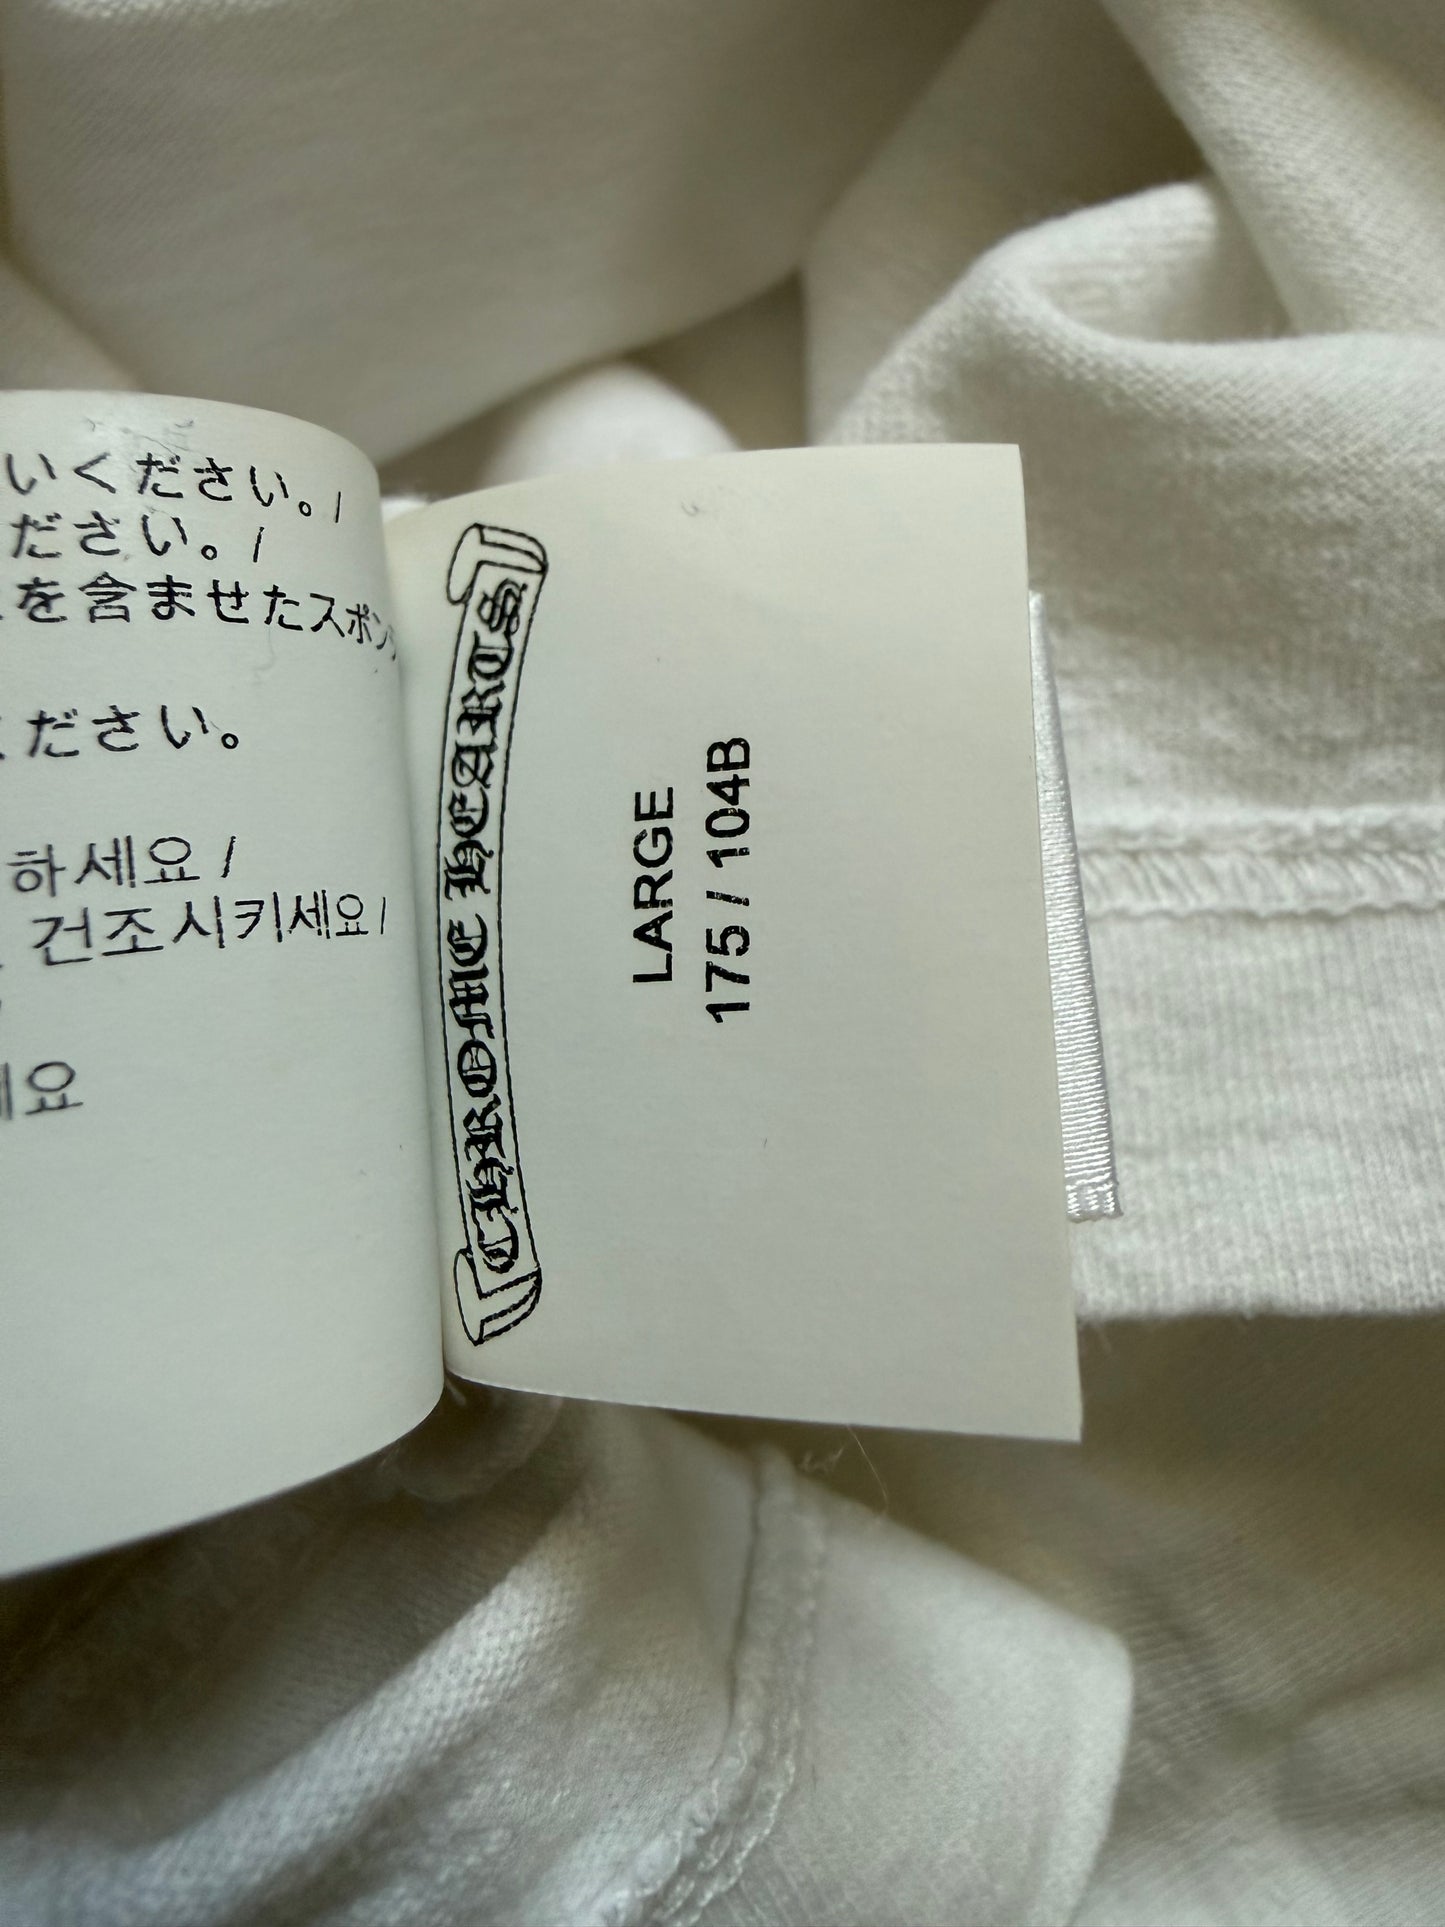 いください。/
ださい。/
を含ませたスポン
ださい。
하세요 /
건조시키세요/
요
CHROME HEARTS
LARGE
175 / 104B